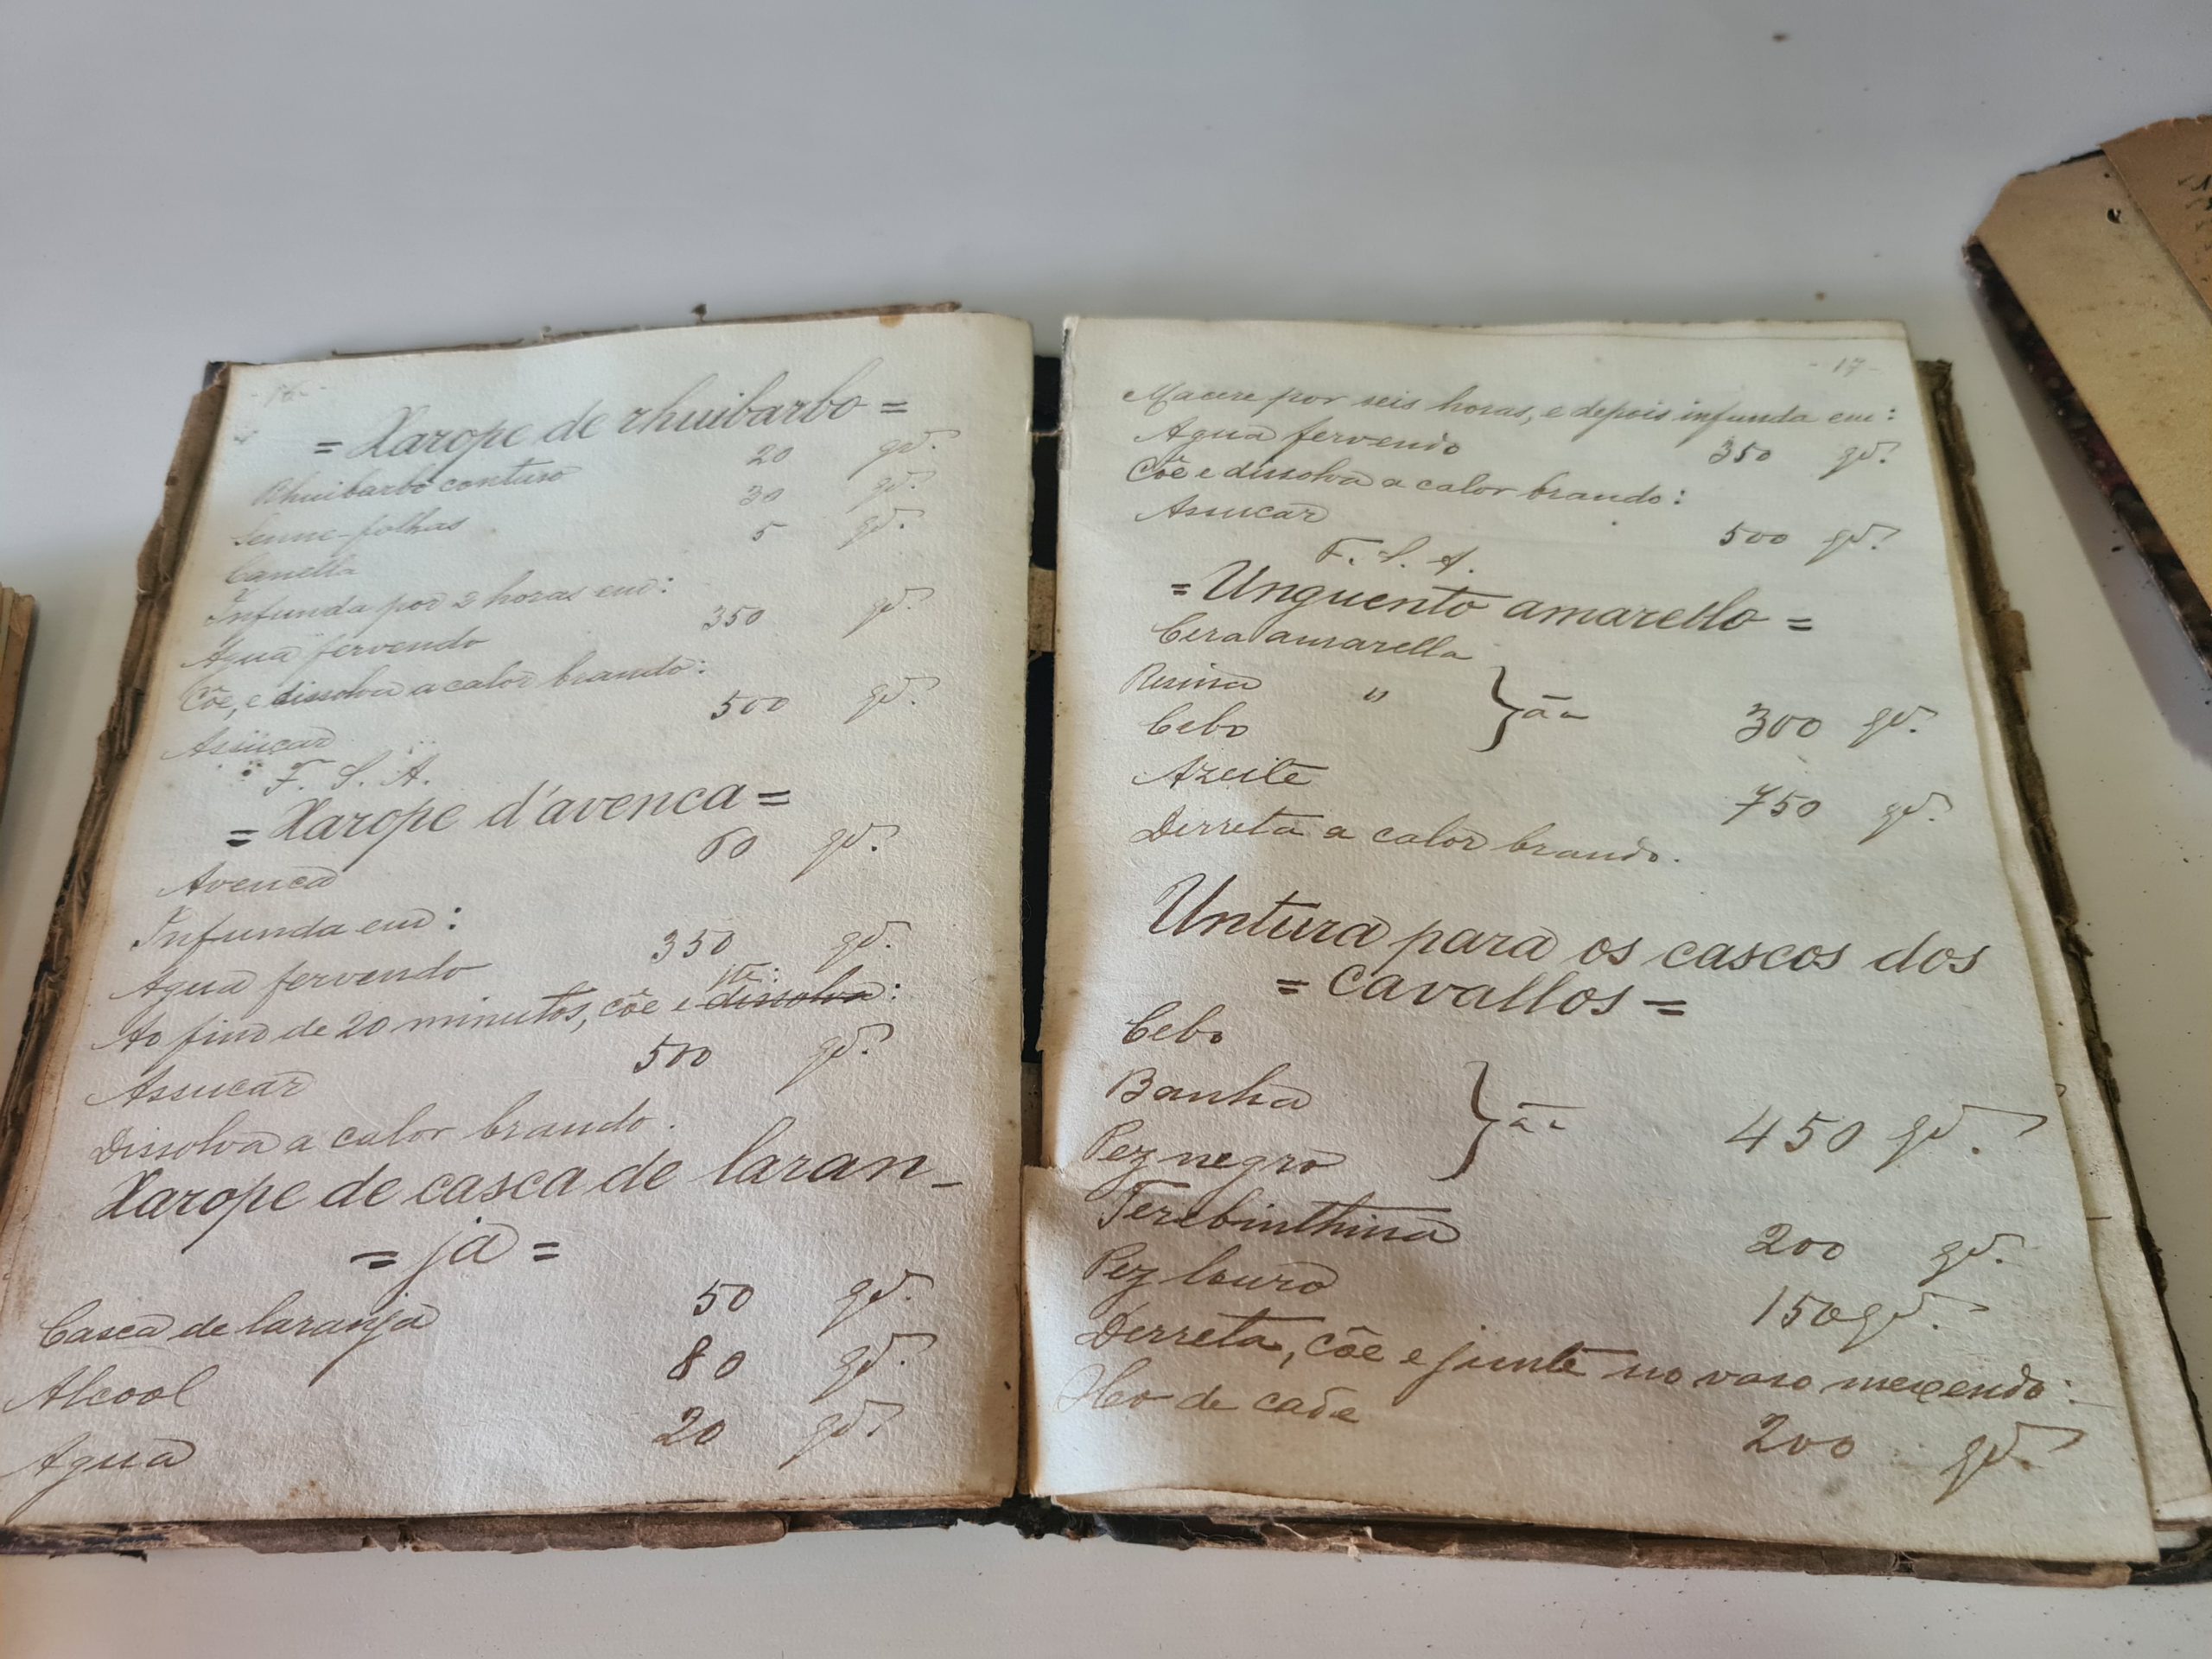 - 16 -
= Xarope de rhuibarbo =
Rhuibarbo contuso 20 gr.
Senne-folhas 30 gr.
Canella 5 gr.
Infunda por 2 horas em:
Agua fervendo 350 gr.
Côe, e dissolva a calor brando:
Assucar 500 gr.
F. S. A.
= Xarope d'avenca =
Avenca 60 gr.
Infunda em:
Agua fervendo 350 gr.
Ao fim de 20 minutos, côe e dissolva:
Assucar 500 gr.
Dissolva a calor brando.
Xarope de casca de laran-
= ja =
Casca de laranja 50 gr.
Alcool 80 gr.
Agua 20 gr.
- 17 -
Macere por seis horas, e depois infunda em:
Agua fervendo 350 gr.
Côe e dissolva a calor brando:
Assucar 500 gr.
F. S. A.
= Unguento amarello =
Cera amarella
Resina " } ãa 300 gr.
Cebo
Azeite 750 gr.
Derreta a calor brando.
Untura para os cascos dos
= cavallos =
Cebo
Banha } ãa 450 gr.
Pez negro
Terebinthina 200 gr.
Pez louro 150 gr.
Derreta, côe e junte no vaso mexendo:
Oleo de cade 200 gr.